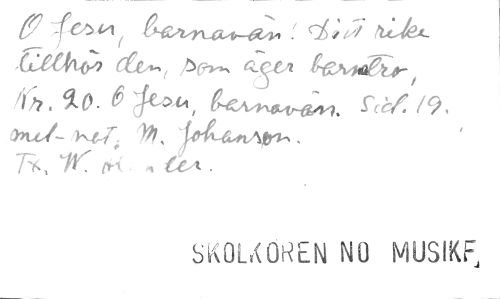 O Jesu, barnavän! Ditt rike
tillhör den, som äger barntro,
Nr. 20. O Jesu, barnavän. Sid. 19.
mel-not. M. Johanson.
Tx. W.
SKOLKÖREN NO MUSIKF,